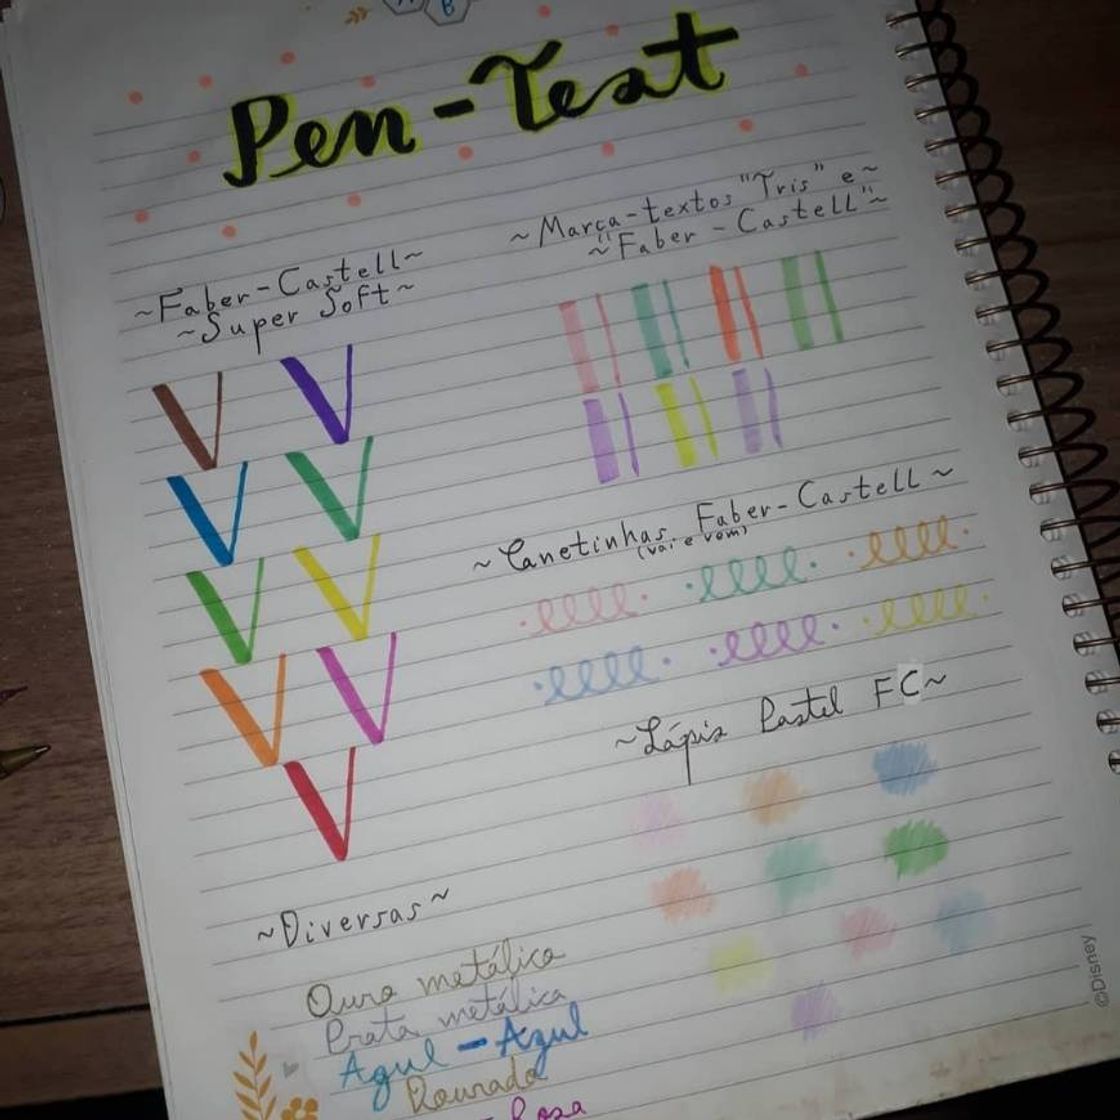 B
Pen-Test
~Faber-Castell~
~Super Soft~
~Marca-textos "Tris" e~
~"Faber-Castell"~
~Canetinhas Faber-Castell~
(vai e vem)
~Lápis Pastel FC~
~Diversas~
Ouro metálica
Prata metálica
Azul - Azul
Dourada
- Rosa
©Disney